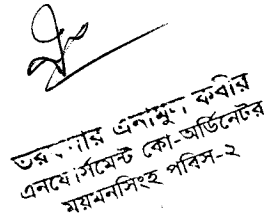 এনামুল কবীর
এনফোর্সমেন্ট কো-অর্ডিনেটর
ময়মনসিংহ পবিস-২